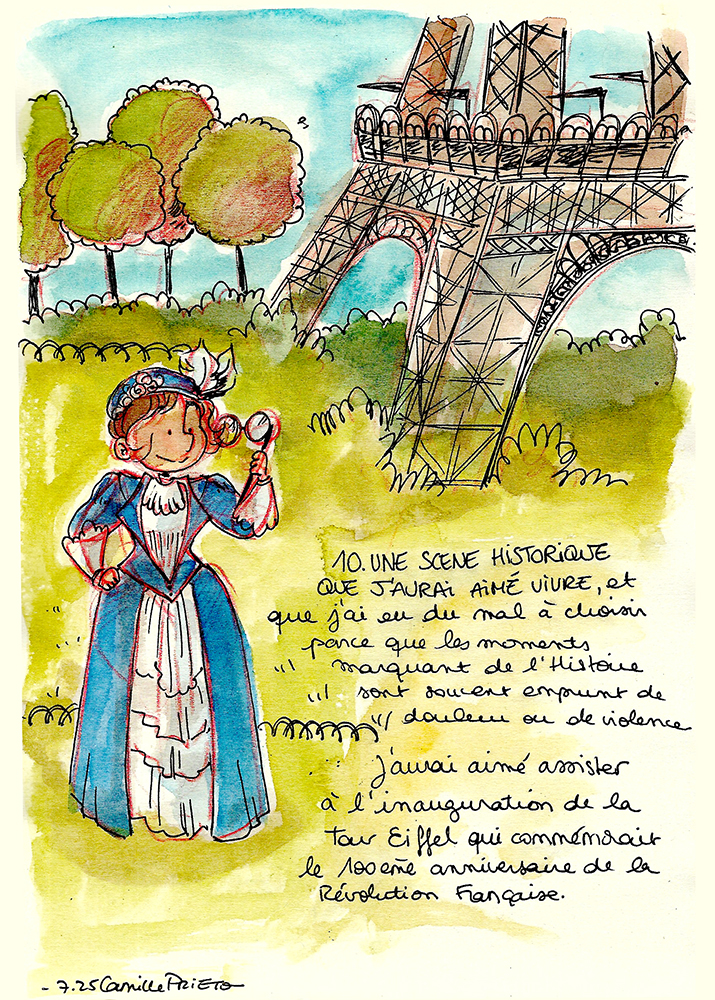 10. UNE SCENE HISTORIQUE
QUE J'AURAI AIMÉ VIVRE, et
que j'ai eu du mal à choisir
parce que les moments
marquant de l'Histoire
sont souvent emprunt de
douleur ou de violence
J'aurai aimé assister
à l'inauguration de la
Tour Eiffel qui commémorait
le 100ème anniversaire de la
Révolution Française.
- 7.25 Camille PRIETO